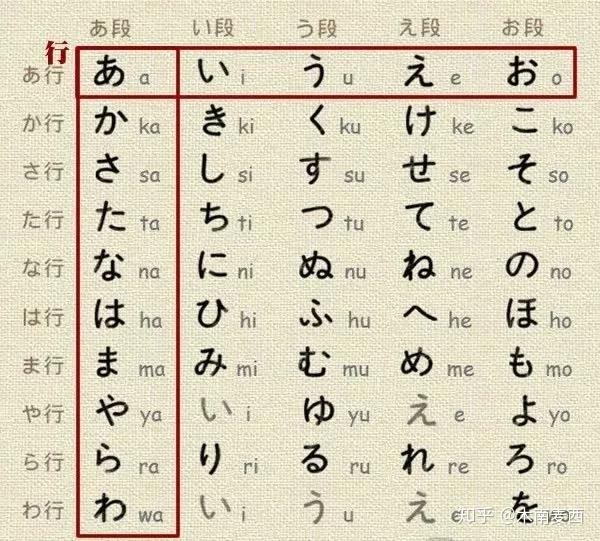 あ段 い段 う段 え段 お段
行
あ行 あ a い i う u え e お o
か行 か ka き ki く ku け ke こ ko
さ行 さ sa し si す su せ se そ so
た行 た ta ち ti つ tu て te と to
な行 な na に ni ぬ nu ね ne の no
は行 は ha ひ hi ふ hu へ he ほ ho
ま行 ま ma み mi む mu め me も mo
や行 や ya い i ゆ yu え e よ yo
ら行 ら ra り ri る ru れ re ろ ro
わ行 わ wa い i う u え e を
知乎 @木南麦西